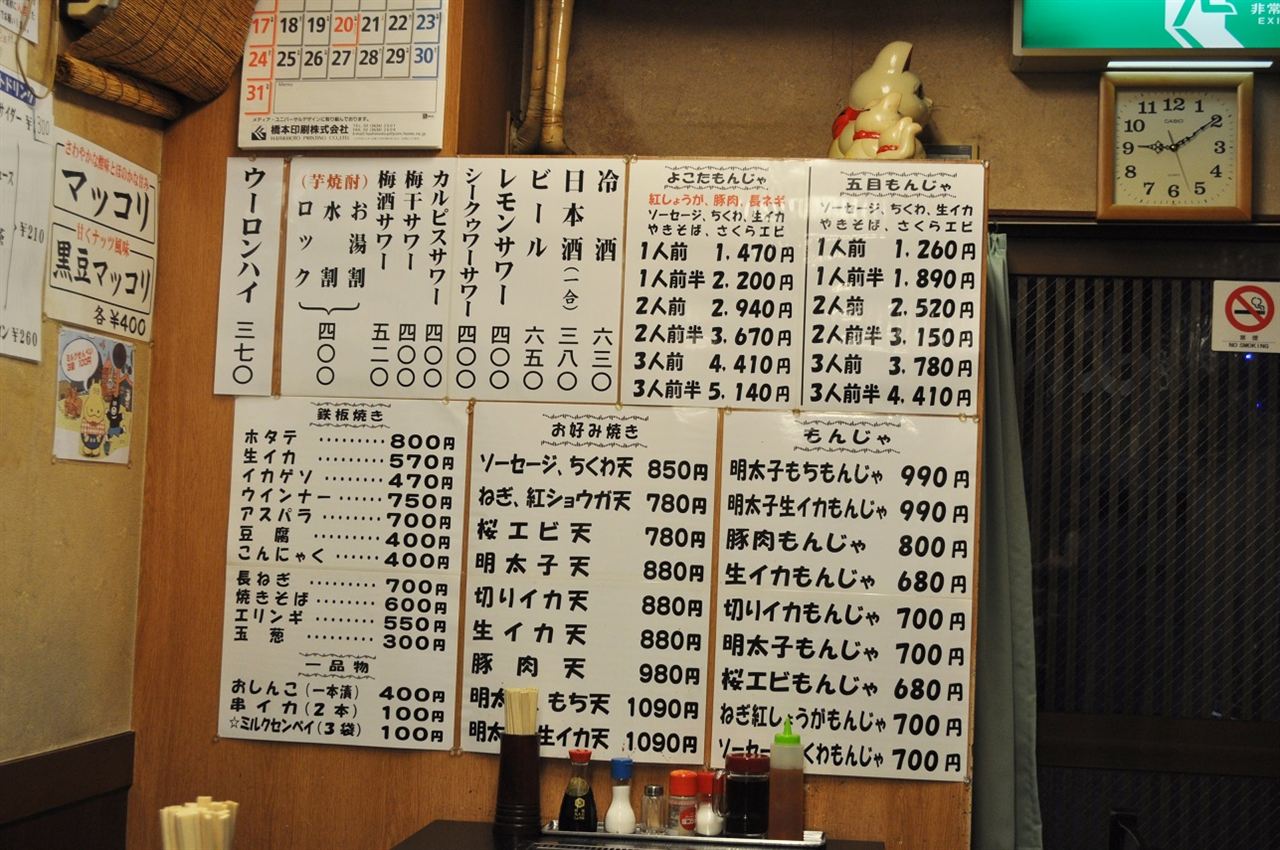 17 18 19 20 21 22 23
24 25 26 27 28 29 30
31
Memo
メディア・ユニバーサルデザインに取り組んでおります。
橋本印刷株式会社
HASHIMOTO PRINTING CO.,LTD.
非常
EXI
CASIO
12 1 2 3 4 5 6 7 8 9 10 11
禁煙
NO SMOKING
トドリンク
サイダー ¥300
¥210
¥260
さわやかな酸味とほのかな甘み
マッコリ
甘くナッツ風味
黒豆マッコリ
各¥400
ミルクせんべい
3袋 100円
冷酒 六三〇
日本酒(一合) 三八〇
ビール 六五〇
レモンサワー 四〇〇
シークゥワーサワー 四〇〇
カルピスサワー 四〇〇
梅干サワー 四〇〇
梅酒サワー 五二〇
(芋焼酎)
お湯割
水割
ロック
四〇〇
ウーロンハイ 三七〇
よこだもんじゃ
紅しょうが、豚肉、長ネギ
ソーセージ、ちくわ、生イカ
やきそば、さくらエビ
1人前 1,470円
1人前半 2,200円
2人前 2,940円
2人前半 3,670円
3人前 4,410円
3人前半 5,140円
五目もんじゃ
ソーセージ、ちくわ、生イカ
やきそば、さくらエビ
1人前 1,260円
1人前半 1,890円
2人前 2,520円
2人前半 3,150円
3人前 3,780円
3人前半 4,410円
鉄板焼き
ホタテ ········· 800円
生イカ ········· 570円
イカゲソ ······· 470円
ウインナー ······ 750円
アスパラ ······· 700円
豆腐 ········· 400円
こんにゃく ······ 400円
長ねぎ ········· 700円
焼きそば ······· 600円
エリンギ ······· 550円
玉葱 ········· 300円
一品物
おしんこ(一本漬) 400円
串イカ(2本) 100円
☆ミルクセンベイ(3袋) 100円
お好み焼き
ソーセージ、ちくわ天 850円
ねぎ、紅ショウガ天 780円
桜エビ天 780円
明太子天 880円
切りイカ天 880円
生イカ天 880円
豚肉天 980円
明太 もち天 1090円
明太 生イカ天 1090円
もんじゃ
明太子もちもんじゃ 990円
明太子生イカもんじゃ 990円
豚肉もんじゃ 800円
生イカもんじゃ 680円
切りイカもんじゃ 700円
明太子もんじゃ 700円
桜エビもんじゃ 680円
ねぎ紅しょうがもんじゃ 700円
ソーセー くわもんじゃ 700円